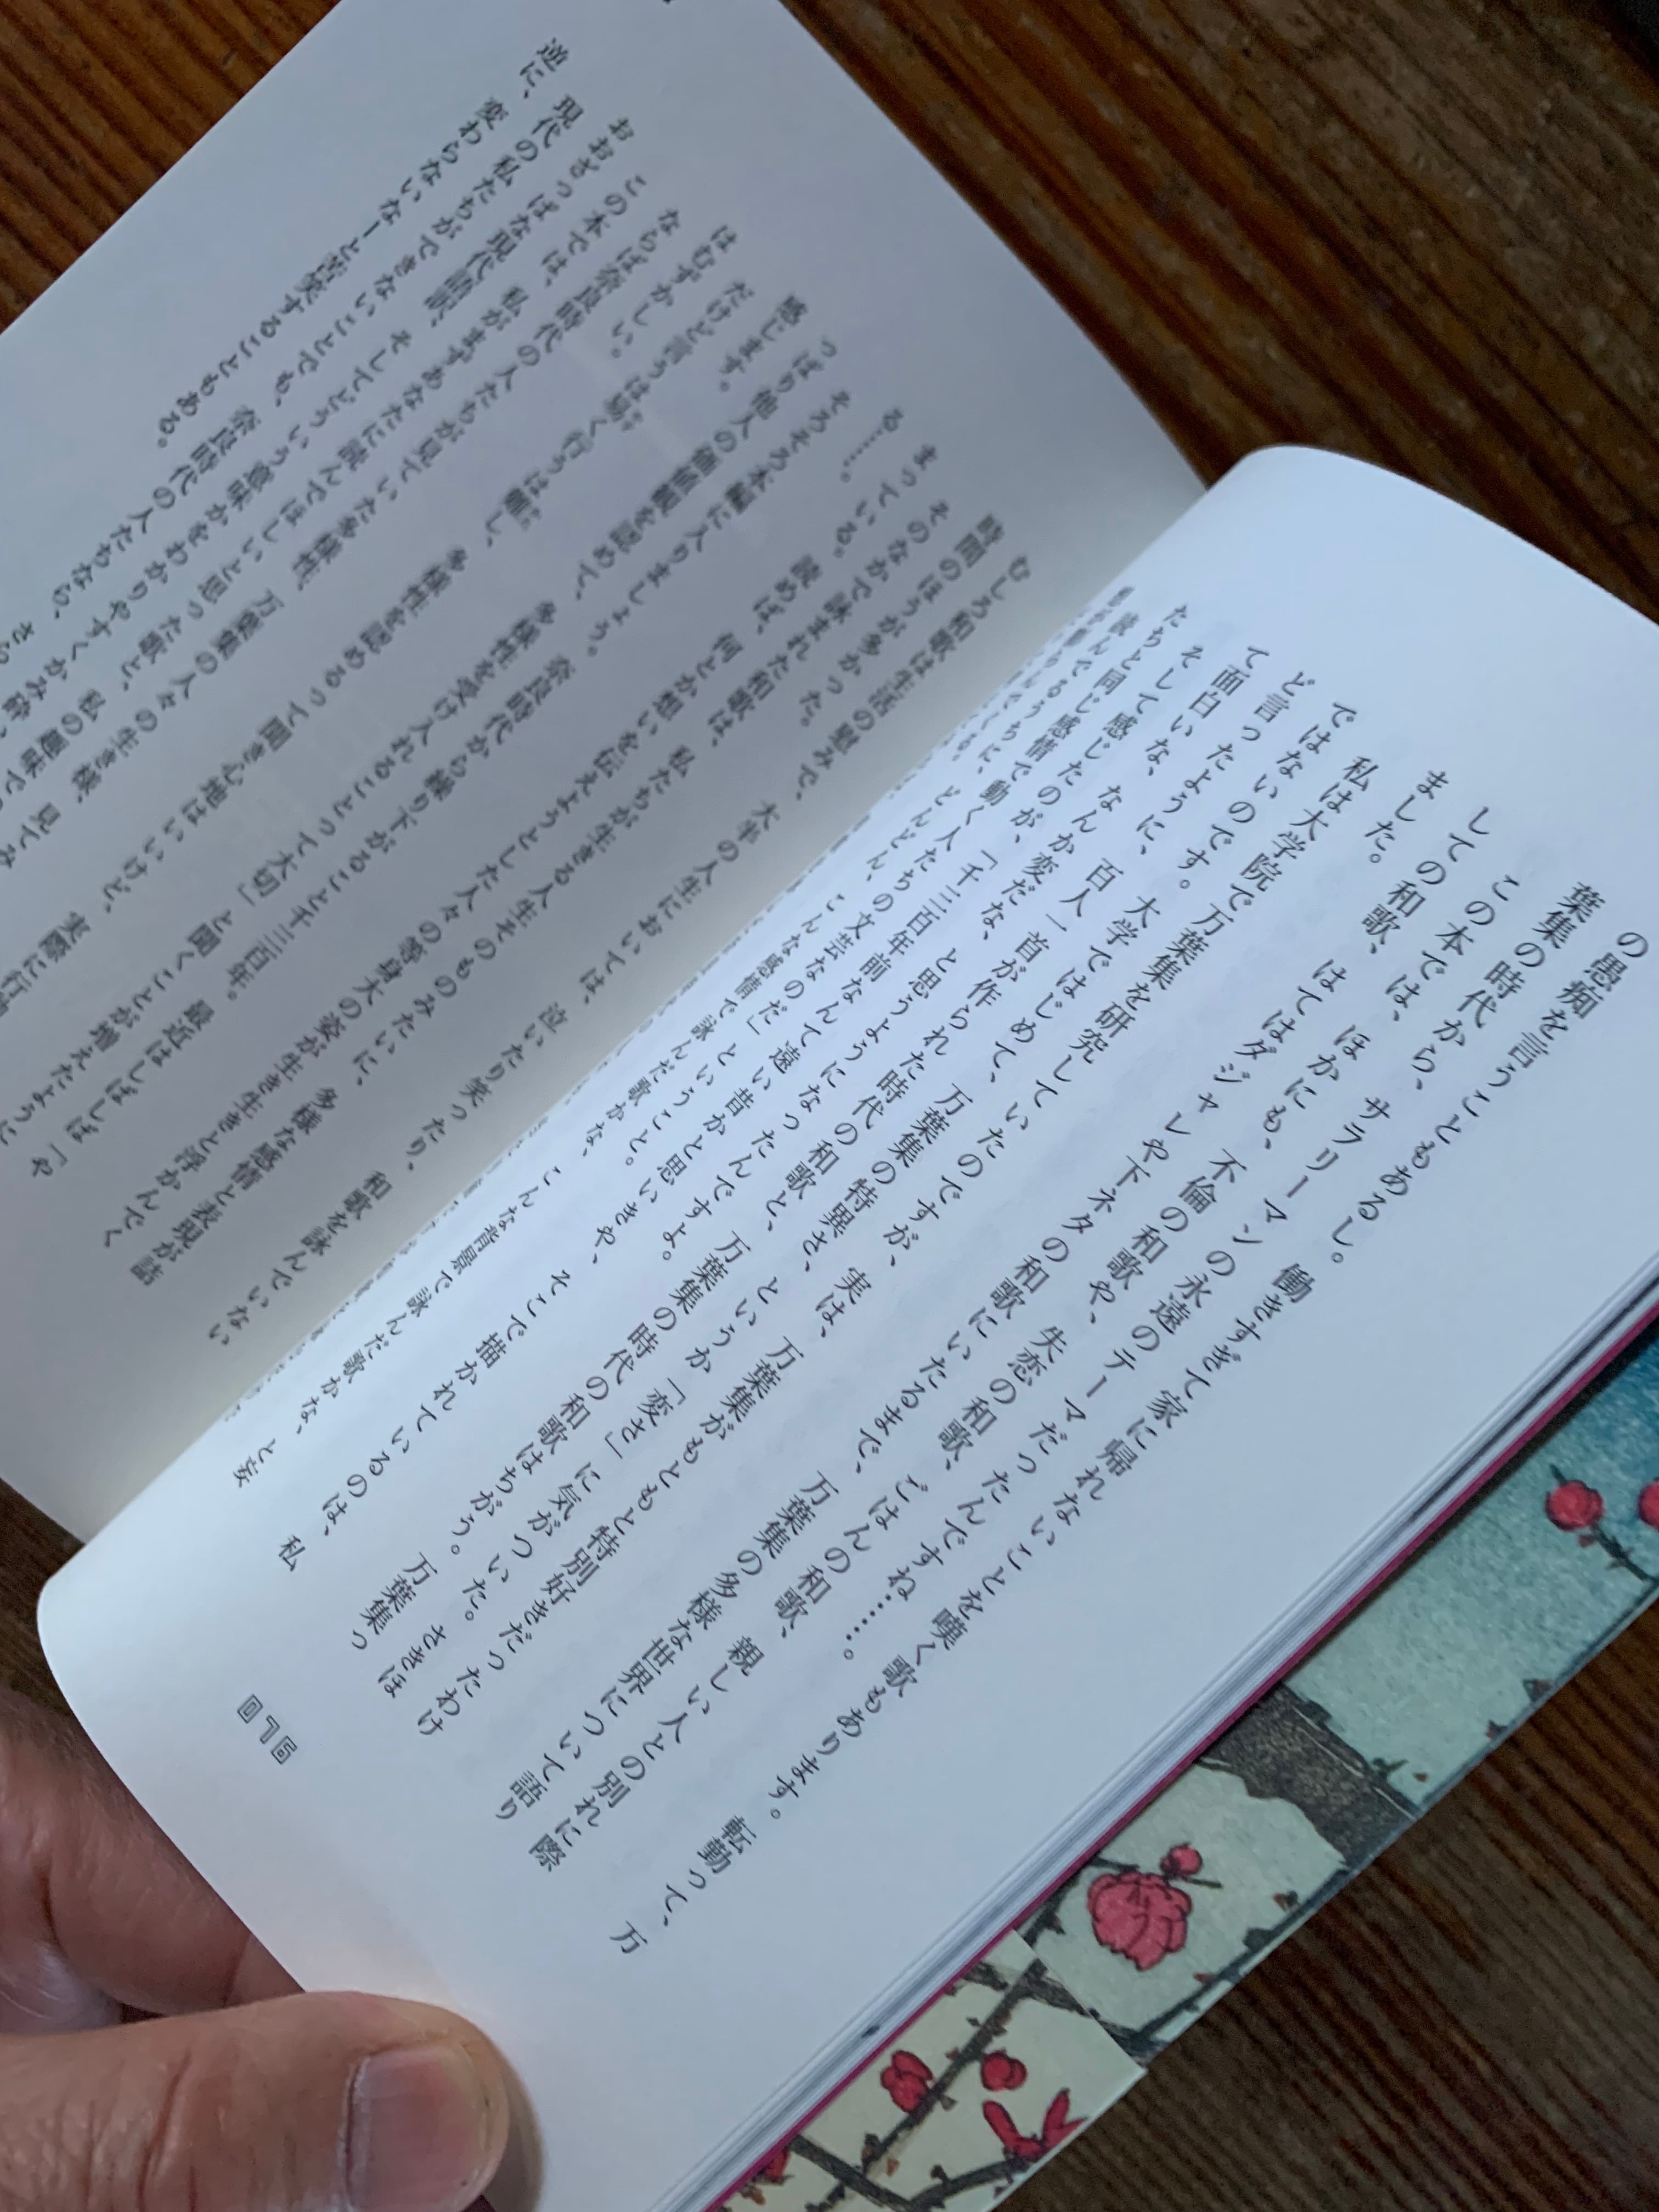 の愚痴を言うこともあるし。働きすぎて家に帰れないことを嘆く歌もあります。転勤って、万
葉集の時代から、サラリーマンの永遠のテーマだったんですね……。
この本では、ほかにも、不倫の和歌や、失恋の和歌、ごはんの和歌、親しい人との別れに際
しての和歌、はてはダジャレや下ネタの和歌にいたるまで、万葉集の多様な世界について語り
ました。
私は大学院で万葉集を研究していたのですが、実は、万葉集がもともと特別好きだったわけ
ではないのです。大学ではじめて、万葉集の特異さ、というか「変さ」に気がついた。さきほ
ど言ったように、百人一首が作られた時代の和歌と、万葉集の時代の和歌はちがう。万葉集っ
て面白いな、なんか変だな、と思うようになったんですよ。
そして感じたのが、「千三百年前なんて遠い昔かと思いきや、そこで描かれているのは、私
たちと同じ感情で動く人たちの文芸なのだ」ということ。
読んでるうちに、どんどん、こんな感情で詠んだ歌かな、こんな背景で詠んだ歌かな、と妄
016
むしろ和歌は生活の慰みで、大半の人生においては、泣いたり笑ったり、和歌を詠んでいない
時間のほうが多かった。
そのなかで詠まれた和歌は、私たちが生きる人生そのものみたいに、多様な感情と表現が詰
まっている。読めば、何とか想いを伝えようとした人々の等身大の姿が生き生きと浮かんでく
る……。
そろそろ本編に入りましょう。奈良時代から繰り下がること千三百年。最近はしばしば「や
っぱり他人の価値観を認めて、多様性を受け入れることって大切」と聞くことが増えたように
感じます。
だけど言うは易く行うは難し、多様性を認めるって聞き心地はいいけど、実際に行動
はむずかしい。
ならば奈良時代の人たちが見ていた多様性、万葉集の人々の生き様、見てみ
この本では、私がまずあなたに読んでほしいと思った歌と、私の趣味で
おおざっぱな現代語訳、そしてどういう意味かをわかりやすくかみ砕
現代の私たちができないことでも、奈良時代の人たちなら、さら
逆に、変わらないなーと苦笑することもある。